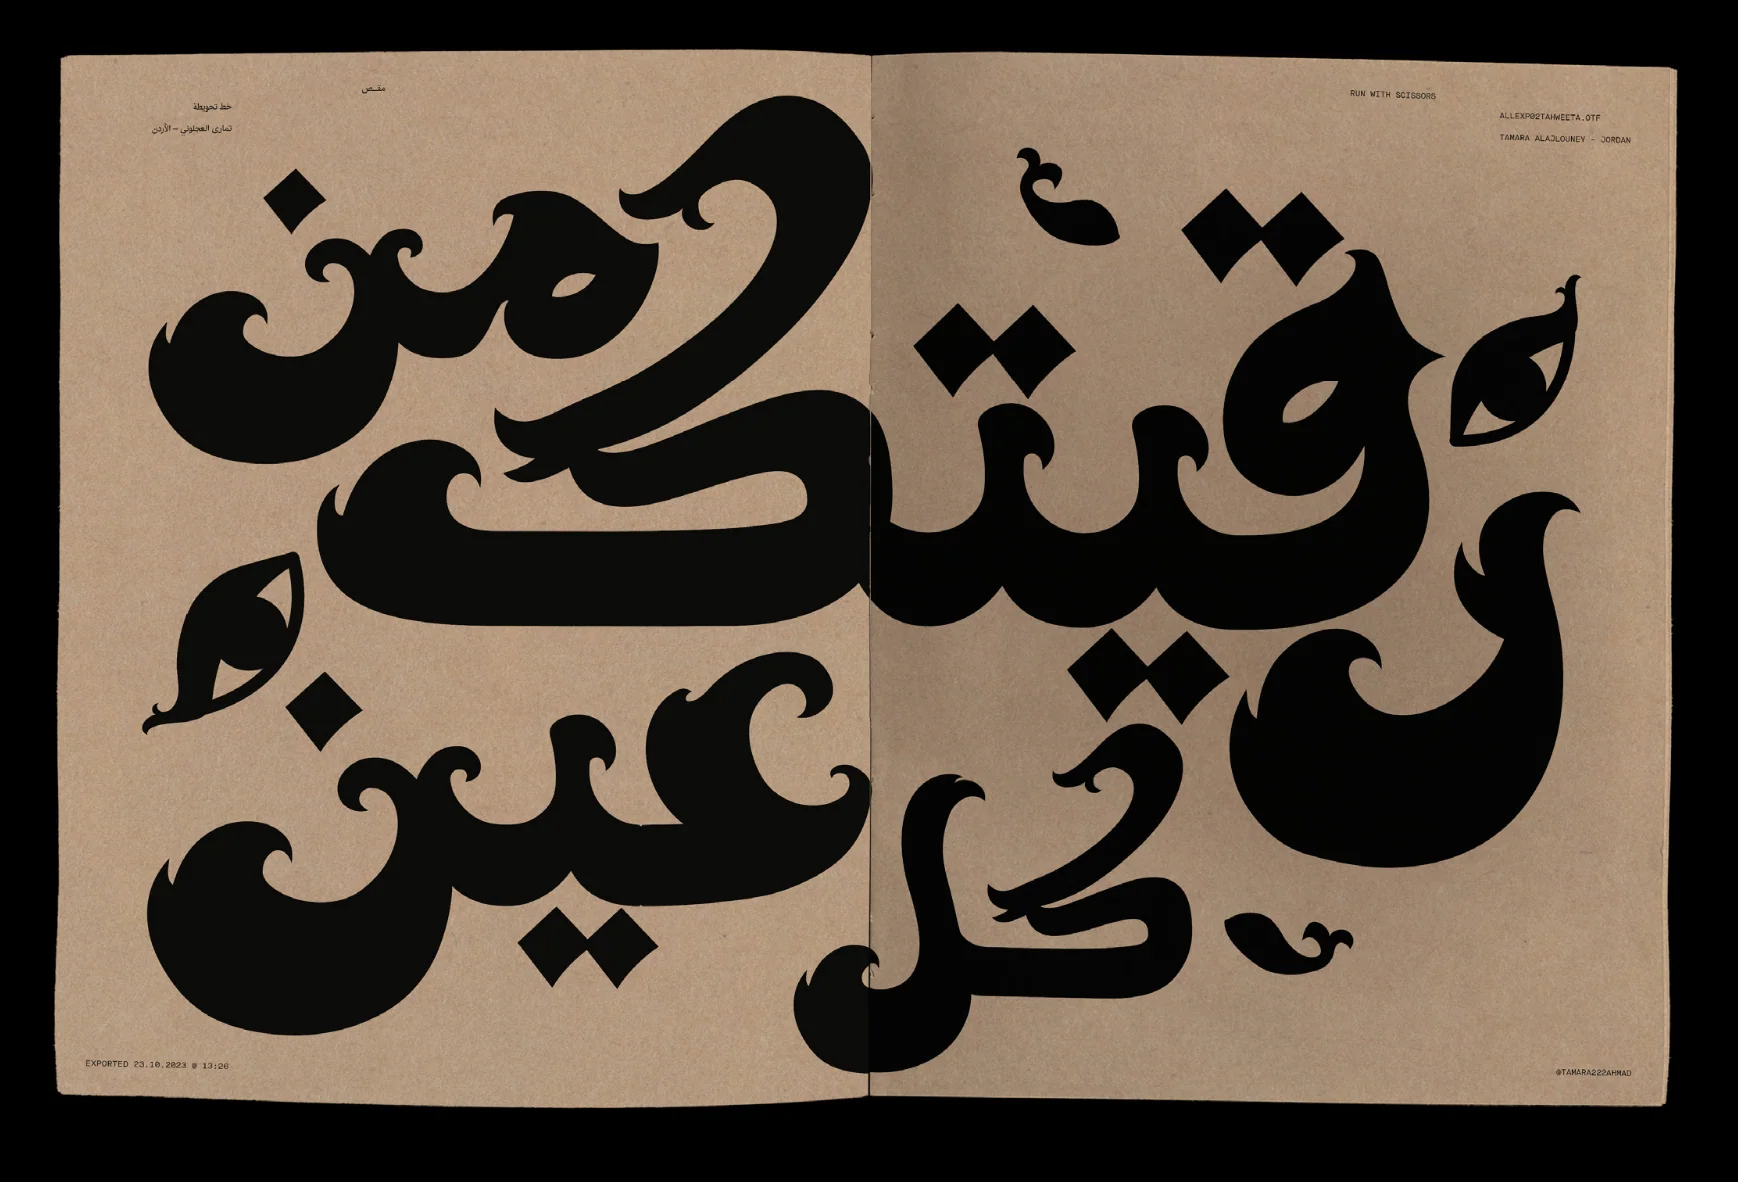 RUN WITH SCISSORS
مقـص
ALLEXP02TAHWEETA.OTF
TAMARA ALAJLOUNEY - JORDAN
خط تحويطة
تمارى العجلوني – الأردن
رقيتك من
كل عين
EXPORTED 23.10.2023 @ 13:26
@TAMARA222AHMAD